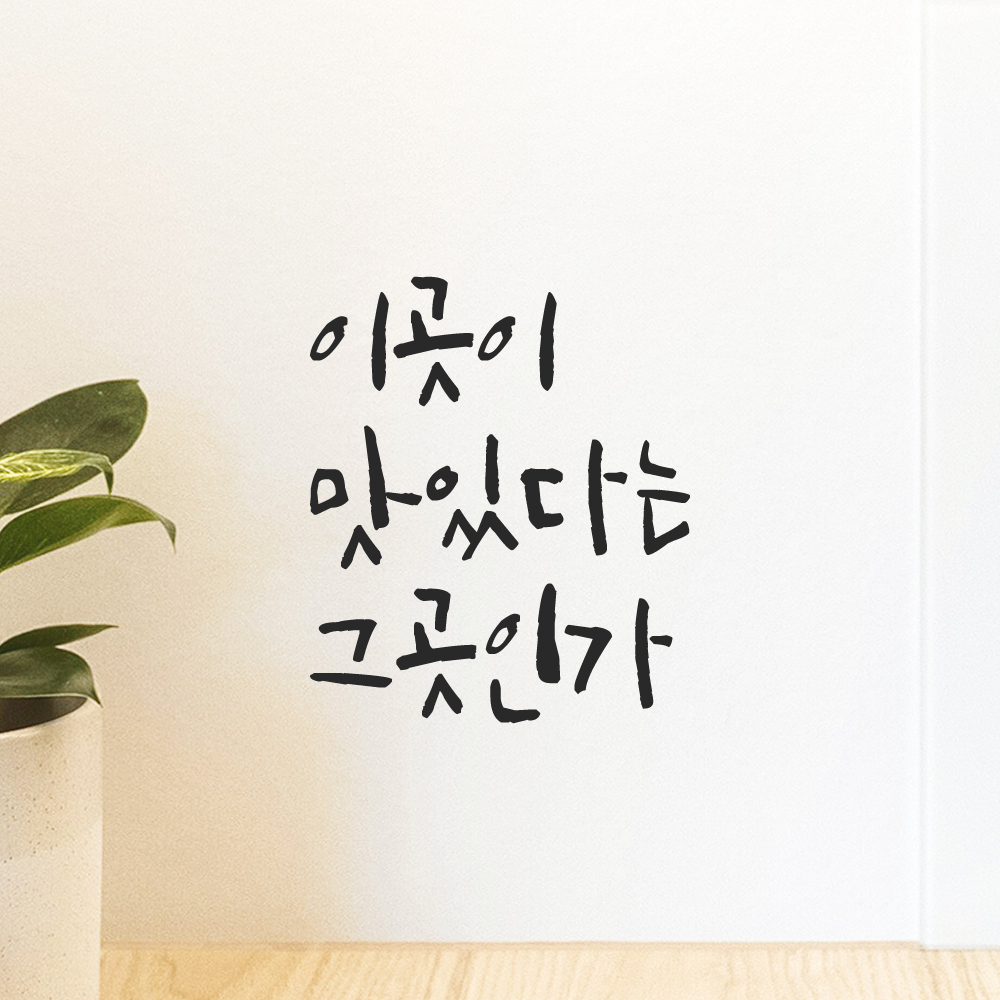 이곳이
맛있다는
그곳인가